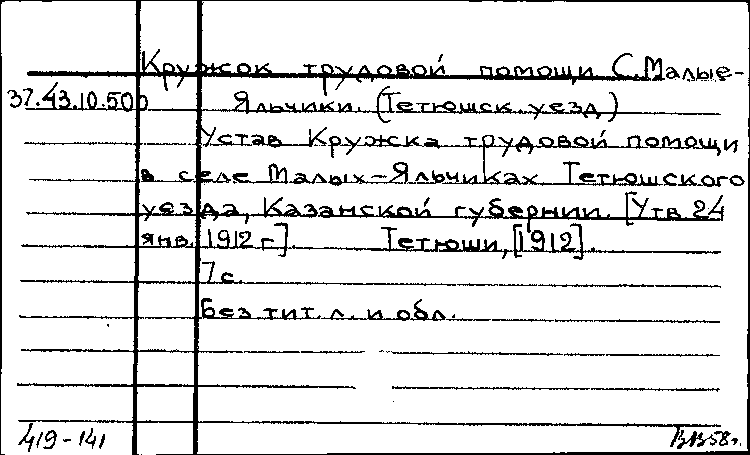 Кружок трудовой помощи С. Малые-
37.43.10.500 Яльчики. (Тетюшск. уезд)
Устав Кружка трудовой помощи
в селе Малых-Яльчиках Тетюшского
уезда, Казанской губернии. [Утв 24
янв. 1912 г]. Тетюши, [1912].
7 с.
Без тит. л. и обл.
419-141 ВВ58г.